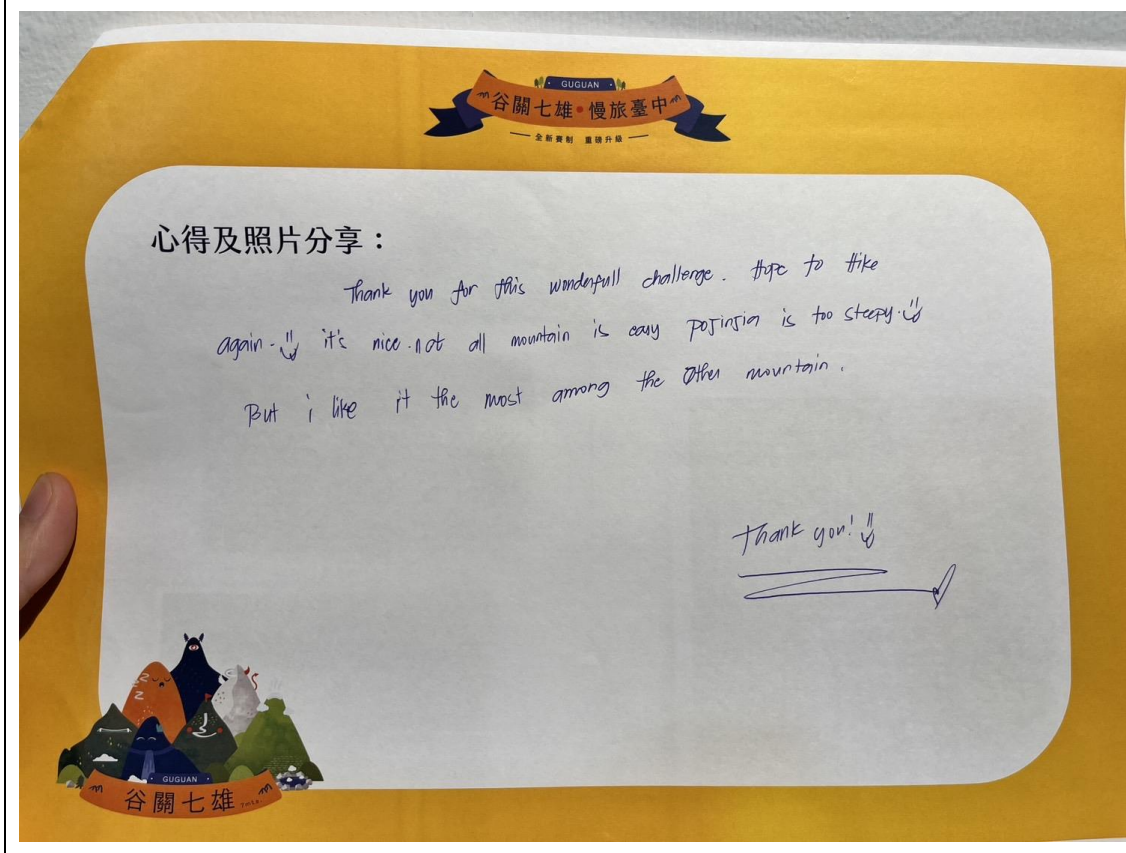 GUGUAN
谷關七雄•慢旅臺中
全新賽制 重磅升級
心得及照片分享：
Thank you for this wonderfull challenge. Hope to Hike
again. it's nice. not all mountain is easy pojinjia is too steepy.
But i like it the most among the Other mountain.
Thank you!
z z z
GUGUAN
谷關七雄